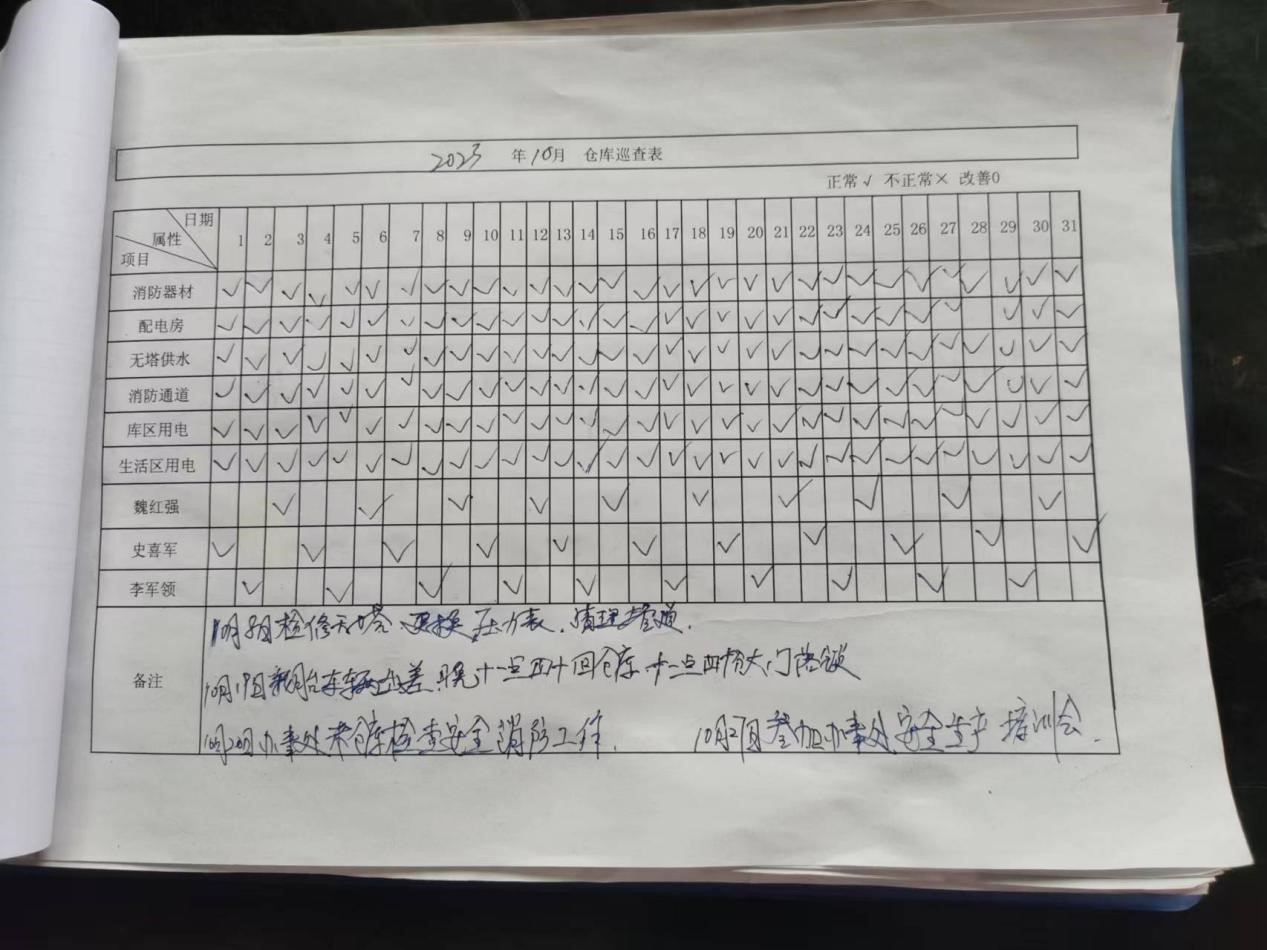 2023 年10月 仓库巡查表
正常√ 不正常× 改善0
日期 属性 项目 1 2 3 4 5 6 7 8 9 10 11 12 13 14 15 16 17 18 19 20 21 22 23 24 25 26 27 28 29 30 31
消防器材 ✓ ✓ ✓ ✓ ✓ ✓ ✓ ✓ ✓ ✓ ✓ ✓ ✓ ✓ ✓ ✓ ✓ ✓ ✓ ✓ ✓ ✓ ✓ ✓ ✓ ✓ ✓ ✓ ✓ ✓ ✓
配电房 ✓ ✓ ✓ ✓ ✓ ✓ ✓ ✓ ✓ ✓ ✓ ✓ ✓ ✓ ✓ ✓ ✓ ✓ ✓ ✓ ✓ ✓ ✓ ✓ ✓ ✓ ✓ ✓ ✓ ✓
无塔供水 ✓ ✓ ✓ ✓ ✓ ✓ ✓ ✓ ✓ ✓ ✓ ✓ ✓ ✓ ✓ ✓ ✓ ✓ ✓ ✓ ✓ ✓ ✓ ✓ ✓ ✓ ✓ ✓ ✓ ✓ ✓
消防通道 ✓ ✓ ✓ ✓ ✓ ✓ ✓ ✓ ✓ ✓ ✓ ✓ ✓ ✓ ✓ ✓ ✓ ✓ ✓ ✓ ✓ ✓ ✓ ✓ ✓ ✓ ✓ ✓ ✓ ✓ ✓
库区用电 ✓ ✓ ✓ ✓ ✓ ✓ ✓ ✓ ✓ ✓ ✓ ✓ ✓ ✓ ✓ ✓ ✓ ✓ ✓ ✓ ✓ ✓ ✓ ✓ ✓ ✓ ✓ ✓ ✓ ✓ ✓
生活区用电 ✓ ✓ ✓ ✓ ✓ ✓ ✓ ✓ ✓ ✓ ✓ ✓ ✓ ✓ ✓ ✓ ✓ ✓ ✓ ✓ ✓ ✓ ✓ ✓ ✓ ✓ ✓ ✓ ✓ ✓ ✓
魏红强 ✓ ✓ ✓ ✓ ✓ ✓ ✓ ✓ ✓ ✓
史喜军 ✓ ✓ ✓ ✓ ✓ ✓ ✓ ✓ ✓ ✓ ✓
李军领 ✓ ✓ ✓ ✓ ✓ ✓ ✓ ✓ ✓ ✓
备注
10月8日检修无塔 更换压力表.清理管道.
10月19日 车辆出差,晚十一点四十回仓库 十一点四十 大门落锁
10月20日办事处来仓库检查安全消防工作. 10月27日参加办事处安全生产培训会.